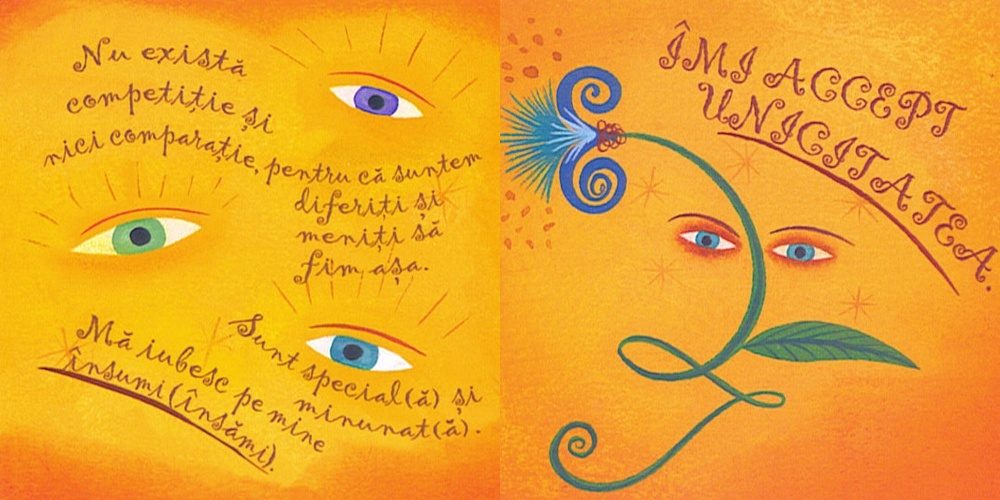 Nu există
competiție și
nici comparație, pentru că suntem
diferiți și
meniți să
fim așa.
Sunt special(ă) și
minunat(ă).
Mă iubesc pe mine
însumi (însămi).
ÎMI ACCEPT
UNICITATEA.